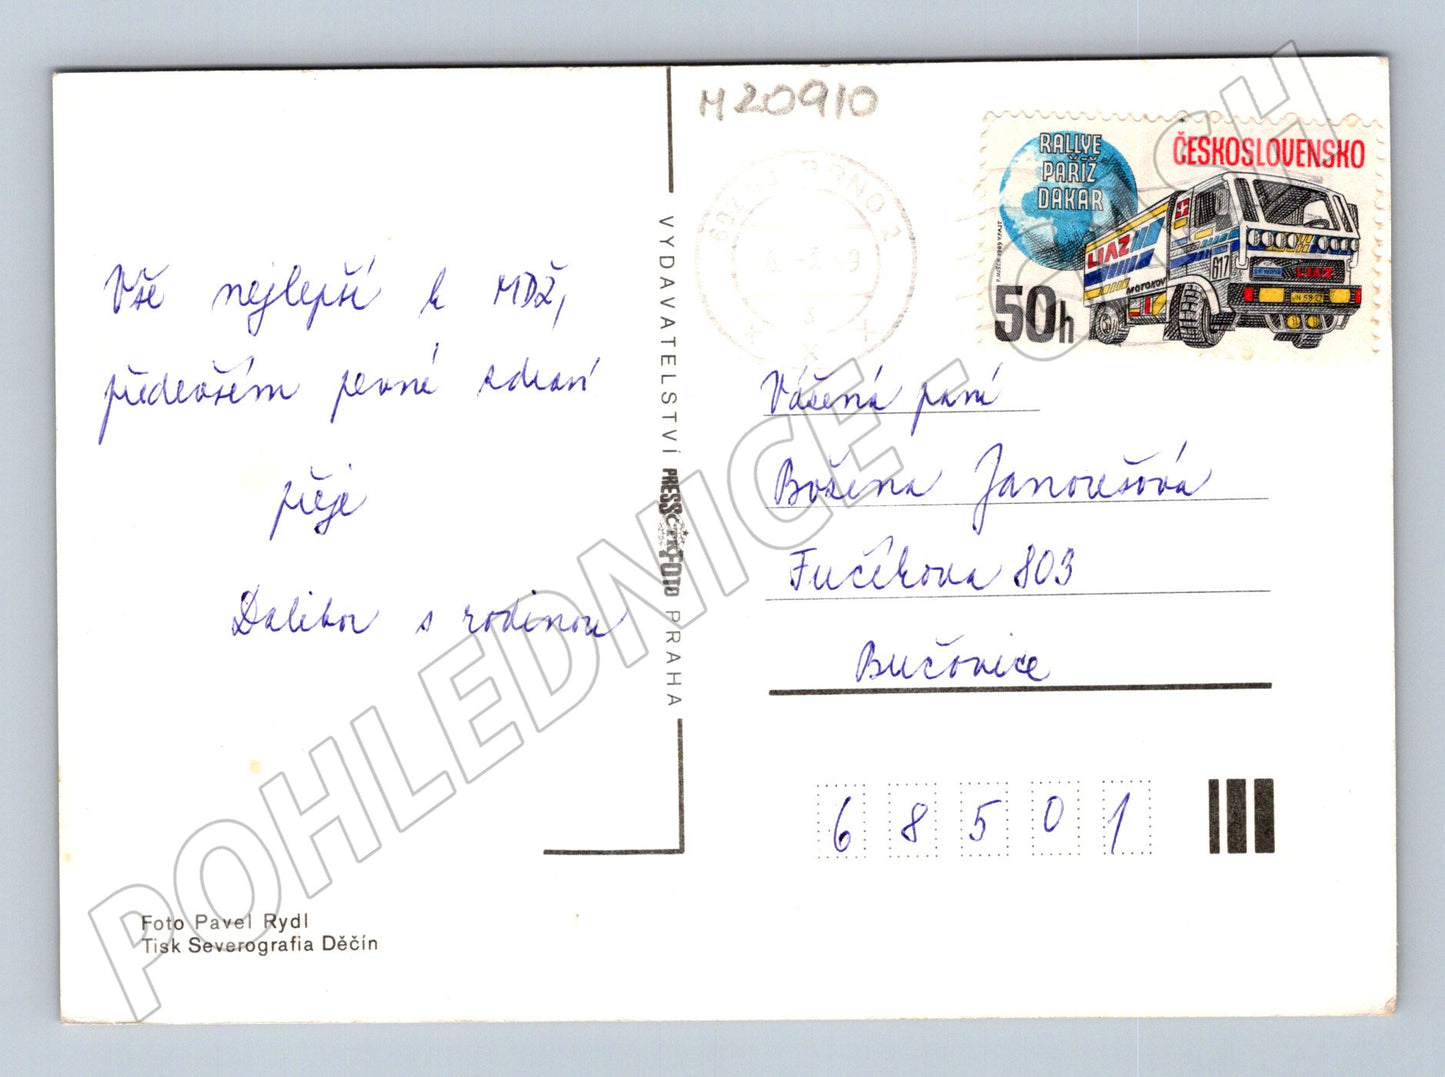 M20910
ČESKOSLOVENSKO
RALLYE
PAŘÍŽ
DAKAR
LIAZ
617
MOTOKOV
LIAZ
50h
BRNO 2
Vše nejlepší k MDŽ,
především pevné zdraví
přeje
Dalibor s rodinou
VYDAVATELSTVÍ PRESSFOTO PRAHA
Vážená paní
Božena Janoušová
Fučíkova 803
Bučovice
68501
Foto Pavel Rydl
Tisk Severografia Děčín
POHLEDNICE - CASH